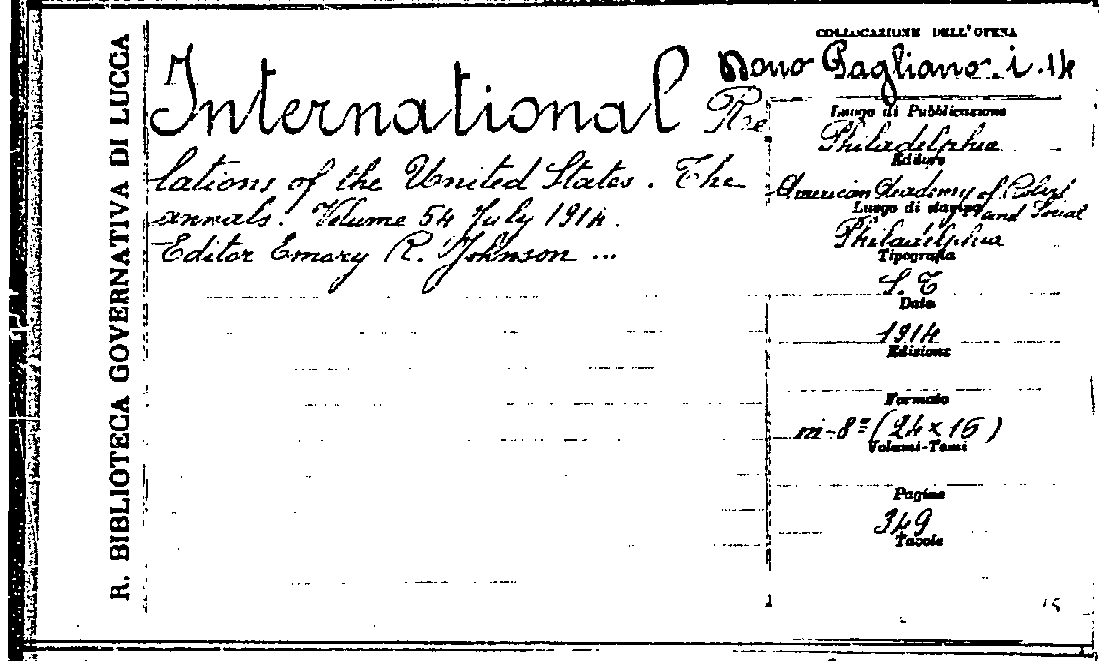 R. BIBLIOTECA GOVERNATIVA DI LUCCA
International Re
lations of the United States. The
annals. Volume 54 July 1914.
Editor Emory R. Johnson ...
COLLOCAZIONE DELL'OPERA
Dono Pagliano. i. 14
Luogo di Pubblicazione
Philadelphia
Editore
American Academy of Polit
and Social
Luogo di stampa
Philadelphia
Tipografia
S. T
Data
1914
Edizione
Formato
in-8º (24x16)
Volumi-Tomi
Pagine
349
Tavole
15